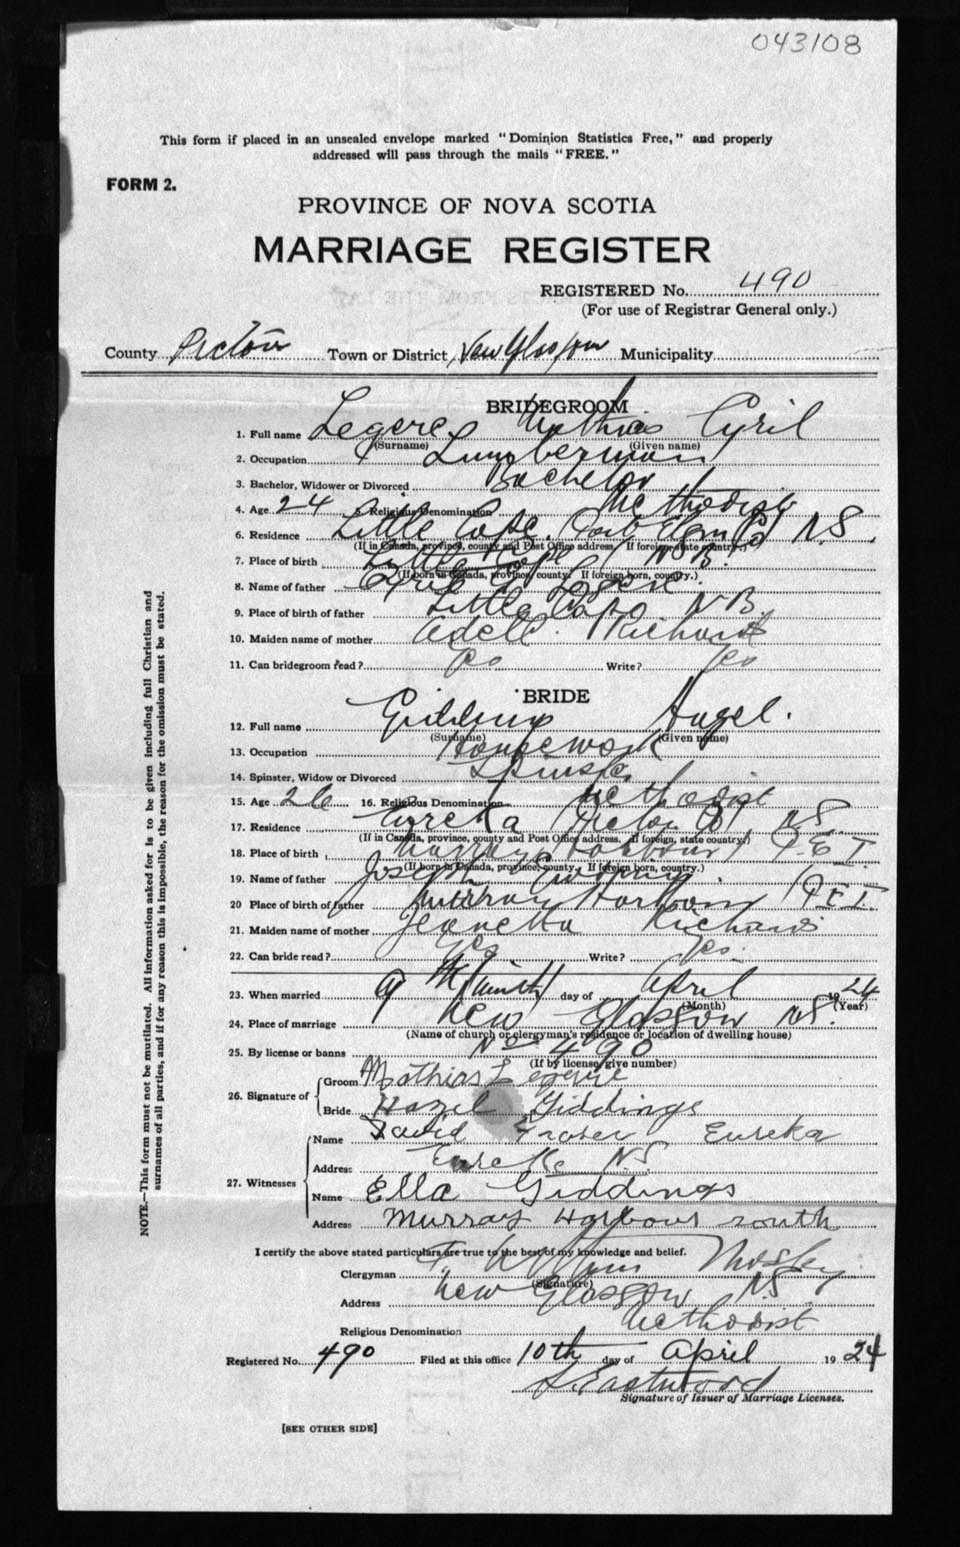 043108
This form if placed in an unsealed envelope marked "Dominion Statistics Free," and properly
addressed will pass through the mails "FREE."
FORM 2.
PROVINCE OF NOVA SCOTIA
MARRIAGE REGISTER
REGISTERED No. 490
(For use of Registrar General only.)
County Pictou Town or District New Glasgow Municipality
BRIDEGROOM
1. Full name Legere Mathias Cyril
(Surname) (Given name)
2. Occupation Lumberman
3. Bachelor, Widower or Divorced Bachelor
4. Age 24 5. Religious Denomination Methodist
6. Residence Little Cape N.S.
(If in Canada, province, county and Post Office address. If foreign, state country.)
7. Place of birth Little Cape N.B.
(If born in Canada, province, county. If foreign born, country.)
8. Name of father Legere
9. Place of birth of father Little Cape N.B.
10. Maiden name of mother Adell Richard
11. Can bridegroom read? Yes Write? Yes
BRIDE
12. Full name Giddings Hazel.
(Surname) (Given name)
13. Occupation Housework
14. Spinster, Widow or Divorced Spinster
15. Age 26 16. Religious Denomination Methodist
17. Residence Eureka Pictou Co NS
(If in Canada, province, county and Post Office address. If foreign, state country.)
18. Place of birth Murray Harbour P.E.I.
(If born in Canada, province, county. If foreign born, country.)
19. Name of father Joseph
20 Place of birth of father Murray Harbour P.E.I.
21. Maiden name of mother Jeanetta Richards
22. Can bride read? Yes Write? Yes.
23. When married 9th (ninth) day of April 1924
(Month) (Year)
24. Place of marriage New Glasgow N.S.
(Name of church or clergyman's residence or location of dwelling house)
25. By license or banns No 490
(If by license, give number)
26. Signature of Groom Mathias Legere
Bride Hazel Giddings
27. Witnesses Name David Fraser Eureka
Address Eureka N.S.
Name Ella Giddings
Address Murray Harbour south
I certify the above stated particulars are true to the best of my knowledge and belief.
Clergyman
(Signature)
Address New Glasgow N.S.
Religious Denomination Methodist
Registered No. 490 Filed at this office 10th day of April 1924
Eastwood
Signature of Issuer of Marriage Licenses.
[SEE OTHER SIDE]
NOTE.—This form must not be mutilated. All information asked for is to be given including full Christian and
surnames of all parties, and if for any reason this is impossible, the reason for the omission must be stated.